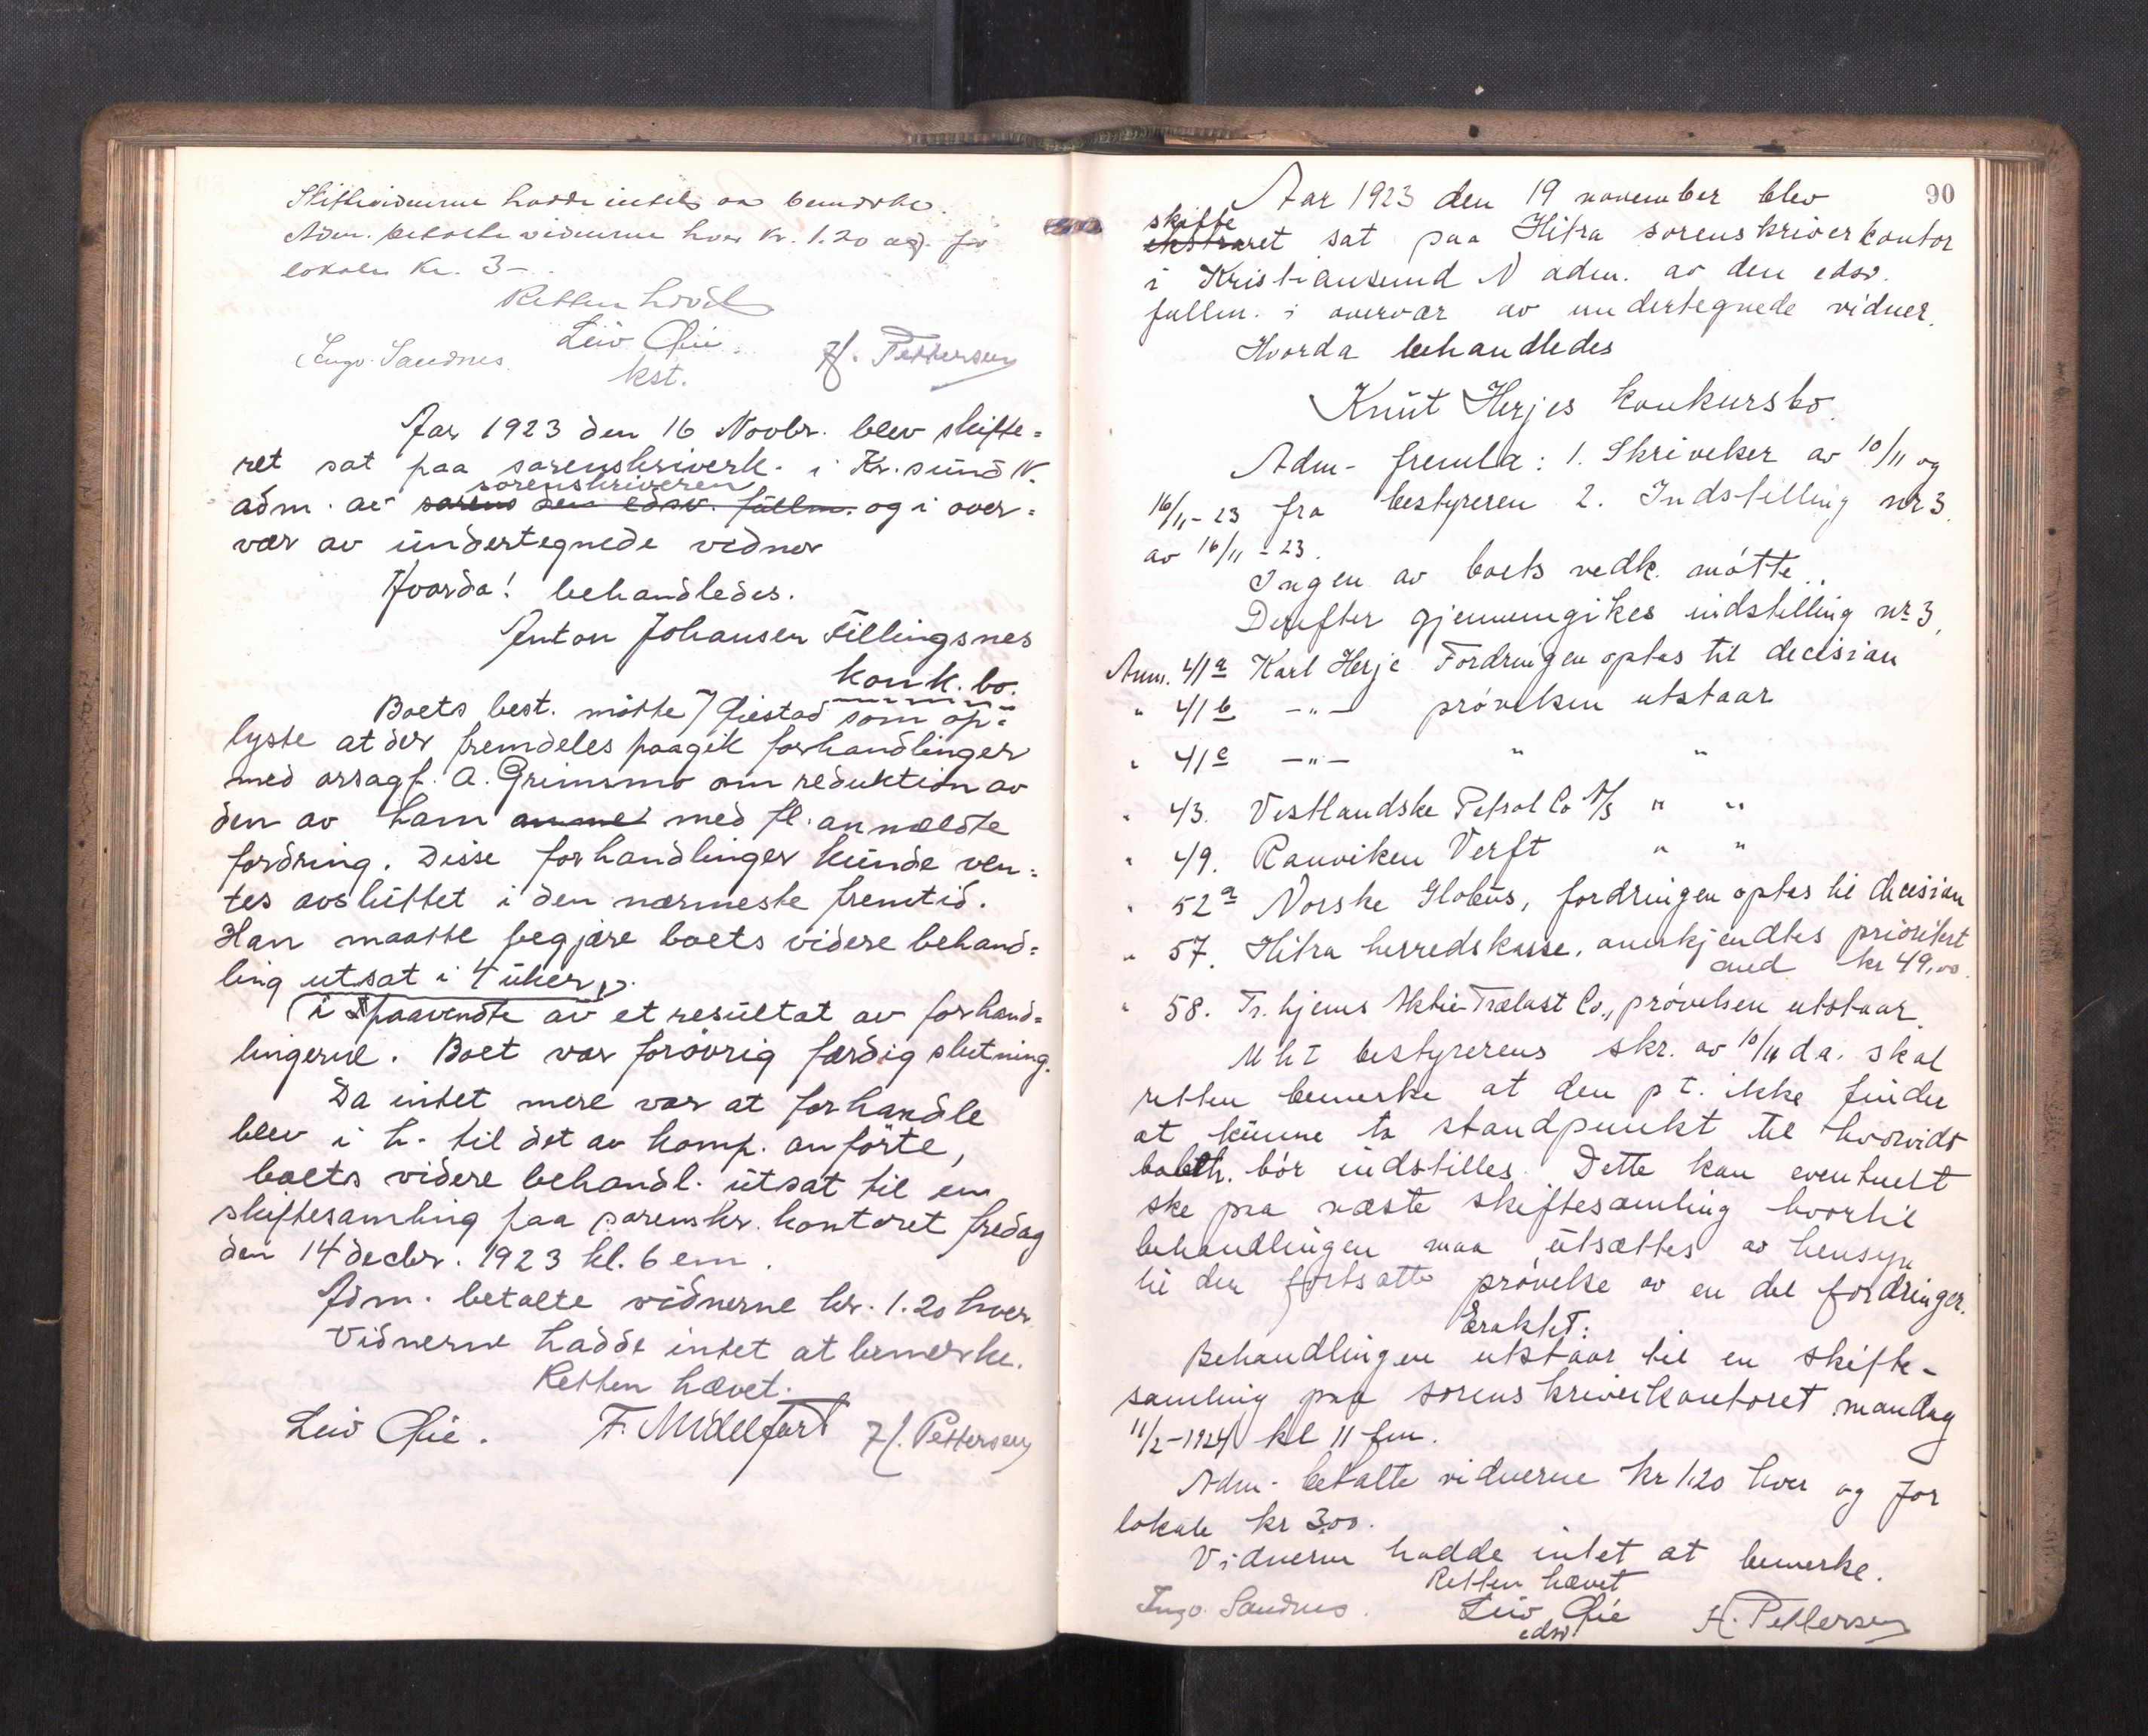 Skiftevidnerne hadde intet at bemerke.
Adm. betalte vidnerne hver kr. 1.20 og for
lokale kr. 3-
Retten hævet
Ingv. Sandnes Leiv Øie H. Pettersen
kst.
Aar 1923 den 16 Novbr. blev skifte=
ret sat paa sorenskriverk. i Kr.sund N.
sorenskriveren
adm. av sorens den edsv. fullm. og i over=
vær av undertegnede vidner
Hvorda! behandledes.
Anton Johansen Fillingsnes
konk. bo.
Boets best. møtte Giestad som op=
lyste at der fremdeles paagik forhandlinger
med orsagf. A. Grimsmo om reduktion av
den av ham anme med fl. anmeldte
fordring. Disse forhandlinger kunde ven=
tes avsluttet i den nærmeste fremtid.
Han maatte begjære boets videre behand=
ling utsat i 4 uker
i paavente av et resultat av forhand=
lingerne. Boet var forøvrig færdig slutning.
Da intet mere var at forhandle
blev i h. til det av komp. anførte,
boets videre behandl. utsat til en
skiftesamling paa sorenskr. kontoret fredag
den 14 decbr. 1923 kl. 6 em.
Adm. betalte vidnerne kr. 1.20 hver
Vidnerne hadde intet at bemerke.
Retten hævet.
Leiv Øie. F. Midelfart H. Pettersen
90
Aar 1923 den 19 november blev
skifte
ekstraret sat paa Hitra sorenskriverkontor
i Kristiansund N adm. av den edsv.
fullm. i overvær av undertegnede vidner.
Hvorda behandledes
Knut Herjes konkursbo.
Adm. fremla: 1. Skrivelser av 10/11 og
16/11-23 fra bestyreren 2. Indstilling nr 3
av 16/11-23.
Ingen av boets vedk. møtte.
Derefter gjennemgikes indstilling nr 3,
Anm. 41a Karl Herje Fordringen optas til decisian
" 41b -"- prøvelsen utstaar
" 41c -"- " "
" 43. Vestlandske Petrol Co A/S " "
" 49. Ranviken Verft " "
" 52a Norske Globus, fordringen optas til decisian
" 57. Hitra herredskasse, anerkjendtes prioritert
med kr 49,00.
" 58. Tr.hjems Aktie-Trælast Co., prøvelsen utstaar.
Mht bestyrerens skr. av 10/11 d.a. skal
retten bemerke at den p t. ikke finder
at kunne ta standpunkt til hvorvidt
bobeh. bør indstilles. Dette kan eventuelt
ske paa næste skiftesamling hvortil
behandlingen maa utsættes av hensyn
til den fortsatte prøvelse av en del fordringer.
Erakht:
Behandlingen utstaar til en skifte-
samling paa sorenskriverkontoret mandag
11/2-1924 kl 11 fm.
Adm. betalte vidnerne kr 1.20 hver og for
lokale kr 3.00.
Vidnerne hadde intet at bemerke.
Retten hævet
Ingv. Sandnes. Leiv Øie H. Pettersen
edsv.